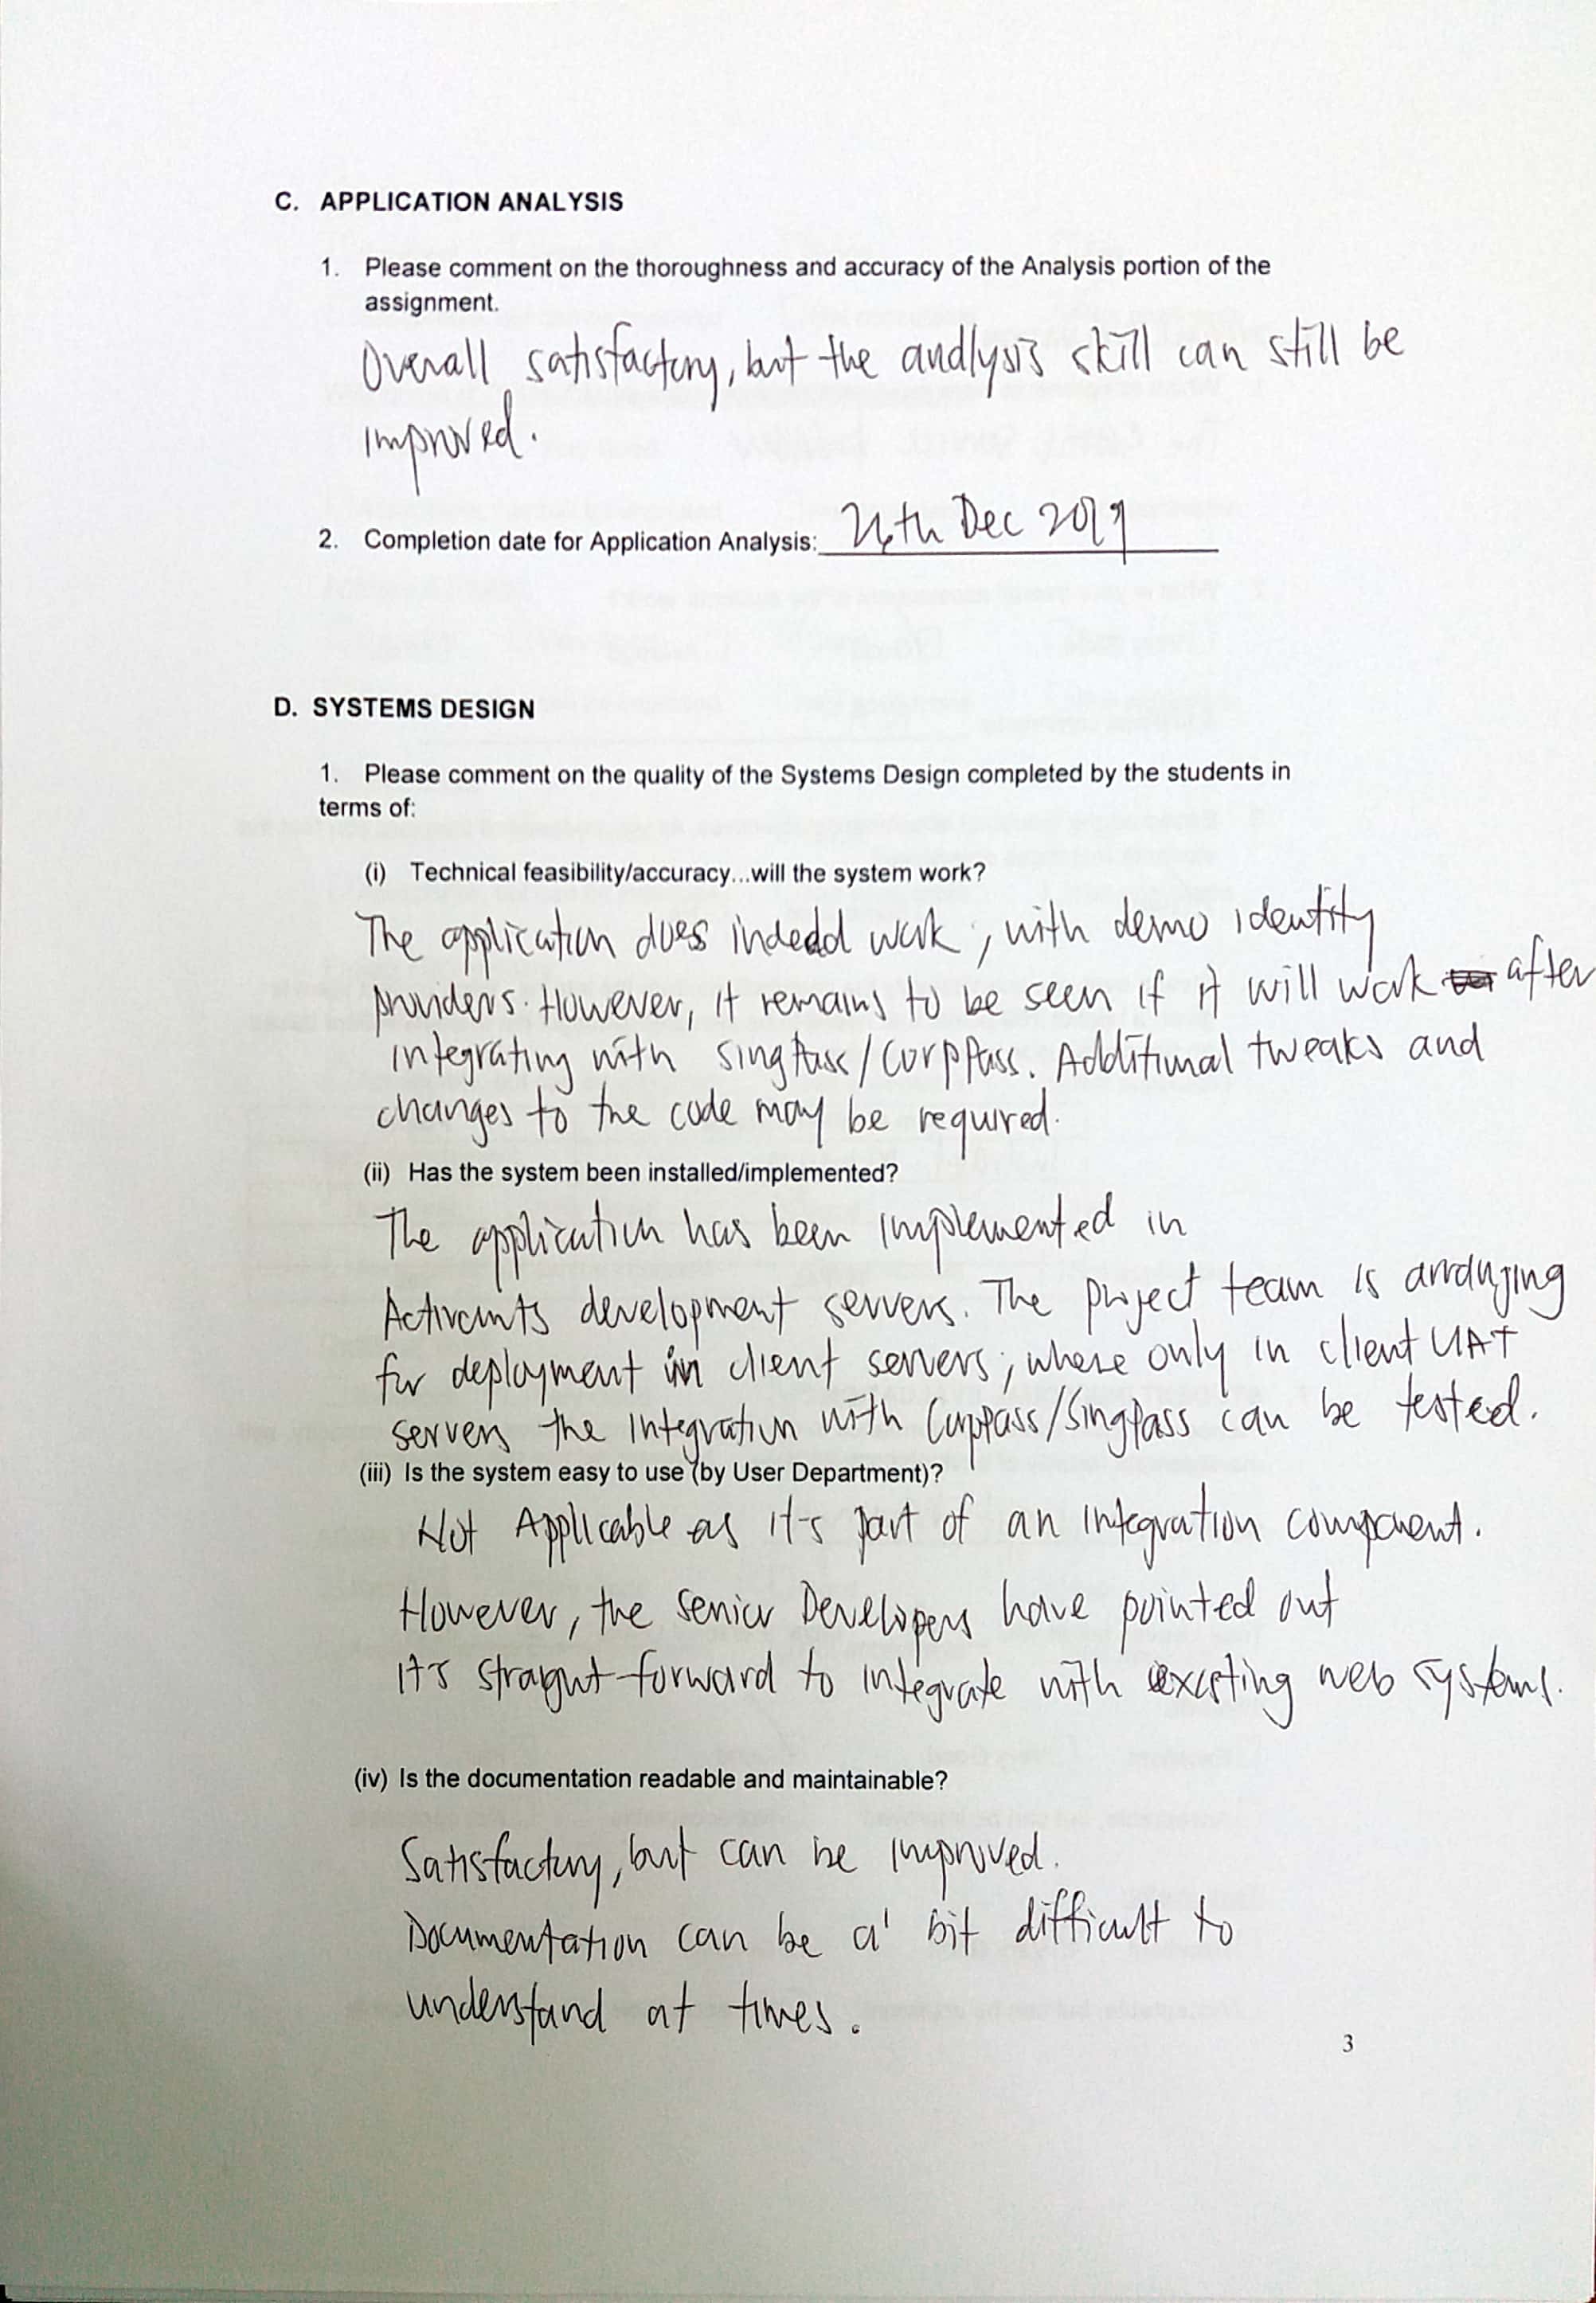 C. APPLICATION ANALYSIS
1. Please comment on the thoroughness and accuracy of the Analysis portion of the
assignment.
Overall satisfactory, but the analysis skill can still be
improved.
2. Completion date for Application Analysis: 26th Dec 2019
D. SYSTEMS DESIGN
1. Please comment on the quality of the Systems Design completed by the students in
terms of:
(i) Technical feasibility/accuracy...will the system work?
The application does indeed work, with demo identity
providers. However, it remains to be seen if it will work after
integrating with SingPass/CorpPass. Additional tweaks and
changes to the code may be required.
(ii) Has the system been installed/implemented?
The application has been implemented in
Activants development servers. The project team is arranging
for deployment in client servers, where only in client UAT
servers the integration with CorpPass/SingPass can be tested.
(iii) Is the system easy to use (by User Department)?
Not Applicable as it's part of an integration component.
However, the senior Developers have pointed out
it's straight-forward to integrate with existing web systems.
(iv) Is the documentation readable and maintainable?
Satisfactory, but can be improved.
Documentation can be a bit difficult to
understand at times.
3